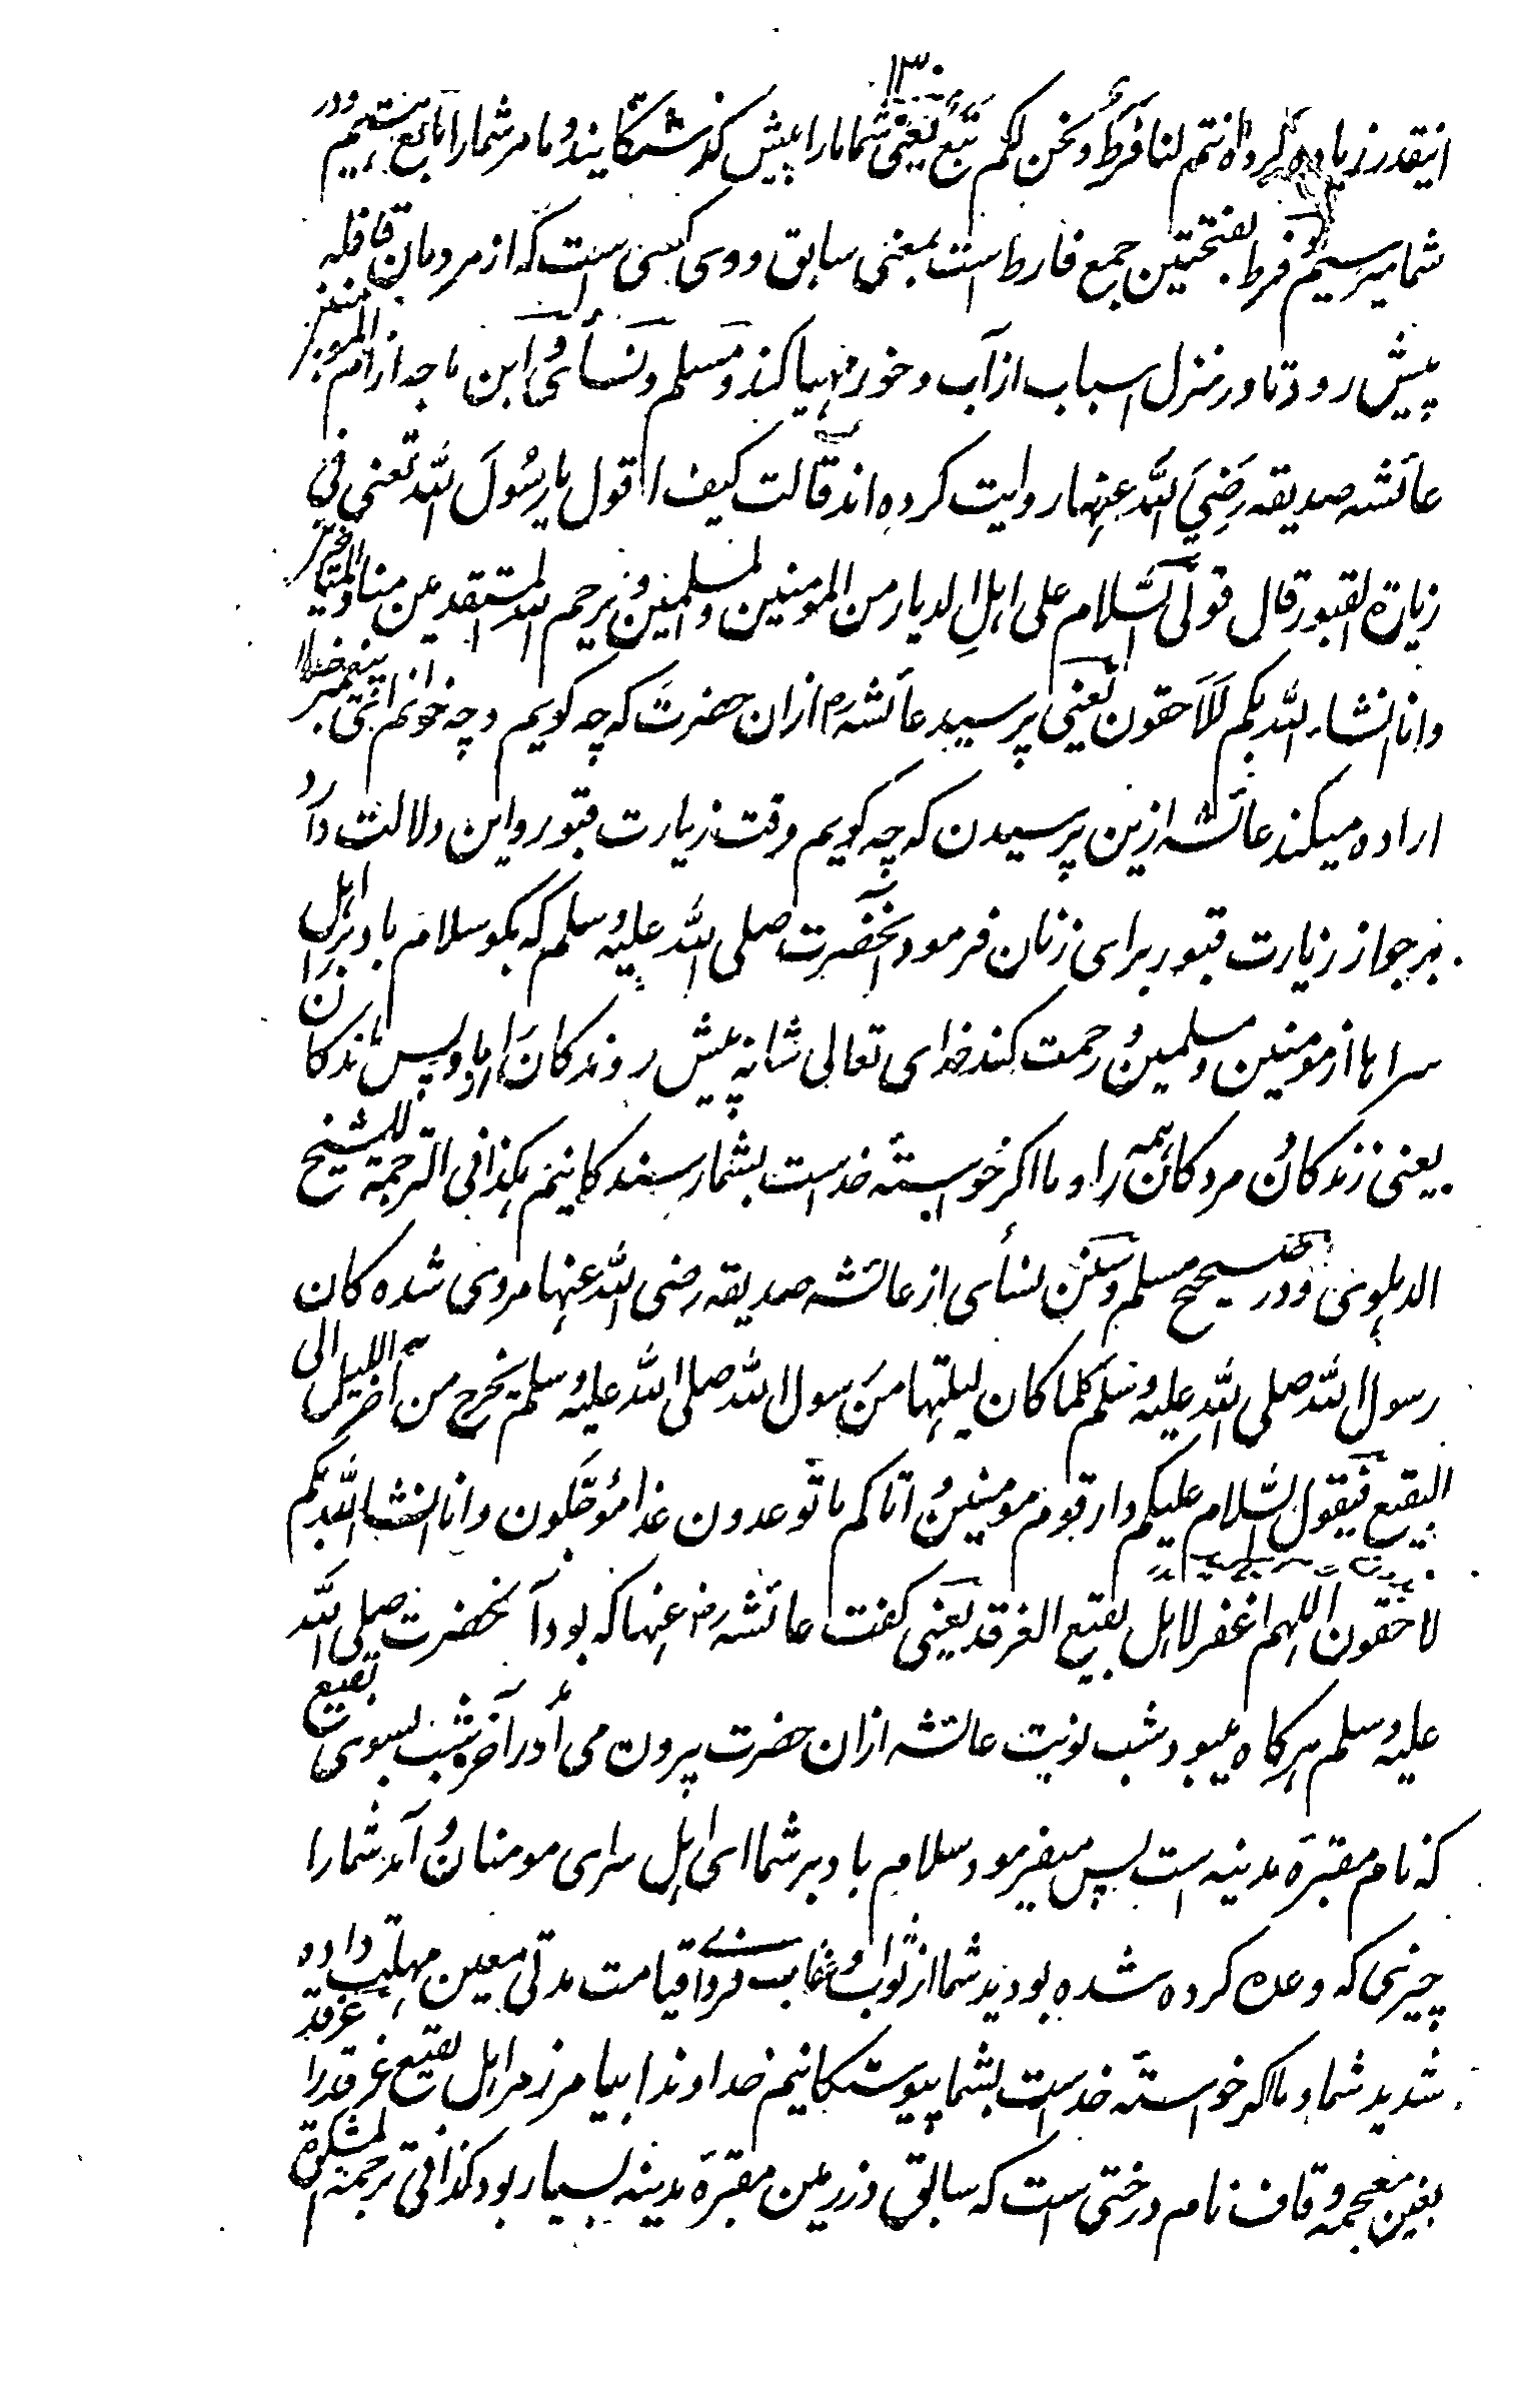 ۱۳۰
اینقدر زیاده کرد انتم لنا فرط و نحن لکم تبع یعنی شما مارا پیش گذشتگانید و ما مر شما را تابع هستیم و در
شما میرسیم و فرط بفتحتین جمع فارط است بمعنی سابق و وی کسی است که از مردمان قافله
پیش رود تا در منزل اسباب از آب و خور مهیا کند و مسلم و نسائی و ابن ماجه از ام المومنین
عائشه صدیقه رضی الله عنها روایت کرده اند قالت کیف اقول یا رسول الله تعنی فی
زیارة القبور قال قولی السلام علی اهل الدیار من المومنین والمسلمین و یرحم الله المستقدمین منا والمتاخرین
وانا انشاء الله بکم للاحقون یعنی پرسید عائشه رض ازان حضرت که چه کویم و چه خوانم ای پیغمبر خدا
اراده میکند عائشه ازین پرسیدن که چه کویم وقت زیارت قبور و این دلالت دارد
بر جواز زیارت قبور برای زنان فرمود آنحضرت صلی الله علیه وسلم که بکو سلام باد بر اهل
سراها از مومنین و مسلمین و رحمت کند خدای تعالی شانه پیش روندکان را و پس ماندکان
یعنی زندکان و مردکان همه را و ما اکر خواسته خداست بشما رسندکانیم هکذا فی الترجمة للشیخ
الدهلوی و در صحیح مسلم و سنن نسائی از عائشه صدیقه رضی الله عنها مروی شده کان
رسول الله صلی الله علیه وسلم کلما کان لیلتها من رسول الله صلی الله علیه وسلم یخرج من آخر اللیل الی
البقیع فیقول السلام علیکم دار قوم مومنین و اتاکم ما توعدون غدا مؤجلون وانا انشاالله بکم
لاحقون اللهم اغفر لاهل بقیع الغرقد یعنی کفت عائشه رض عنها که بود آنحضرت صلی الله
علیه وسلم هرکاه میبود شب نوبت عائشه ازان حضرت بیرون می آمد در آخر شب بسوی بقیع
که نام مقبره مدینه است پس میفرمود سلام باد بر شما ای اهل سرای مومنان و آمد شما را
چیزی که وعده کرده شده بودید شما از ثواب و عقاب فردای قیامت مدتی معین مهلت داده
شدید شما و ما اکر خواسته خداست بشما پیوستکانیم خداوندا بیامرز مر اهل بقیع غرقد را غرقد
بغین معجمه و قاف نام درختی است که سابق در زمین مقبره مدینه بسیار بود کذا فی ترجمة المشکوة